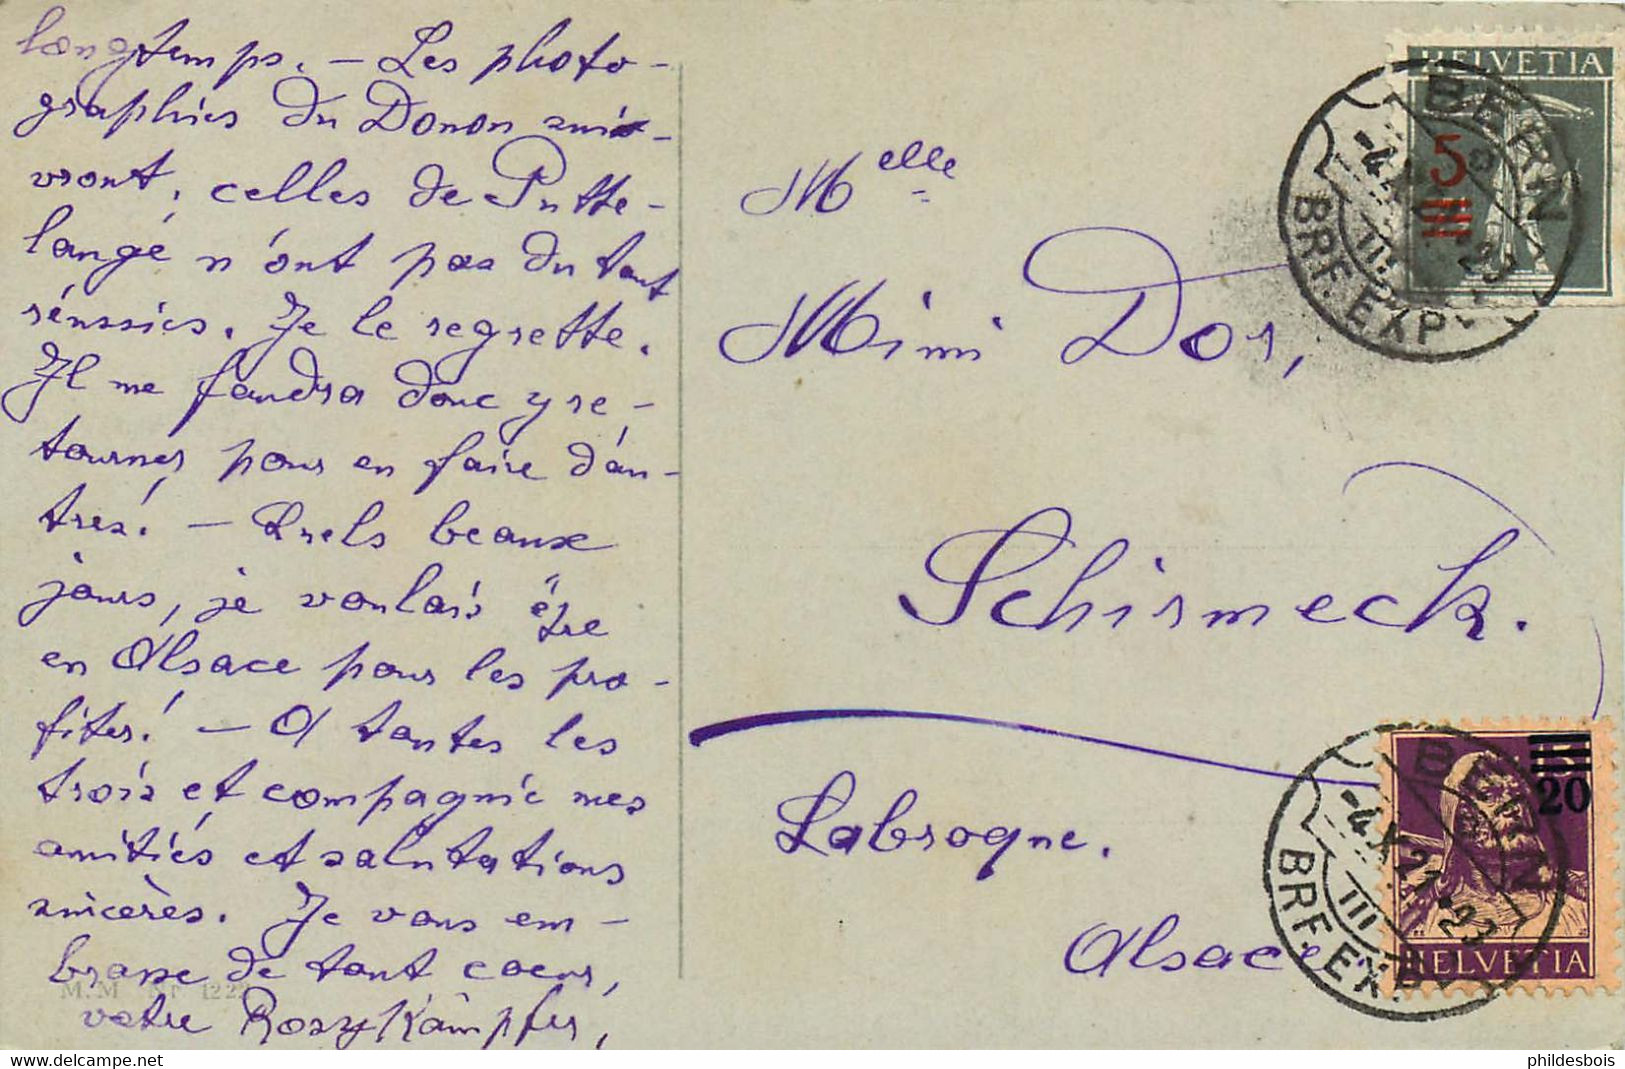 longtemps. — Les photo-
graphies du Donon sui-
vront, celles de Putte-
lange n'ont pas du tout
réussies. Je le regrette.
Il me faudra donc y re-
tourner pour en faire d'au-
tres! — Quels beaux
jours, je voulais être
en Alsace pour les pro-
fiter! — A toutes les
trois et compagnie mes
amitiés et salutations
sincères. Je vous em-
brasse de tout coeur,
votre Rosy Kämpfer,
M.M Nr. 122
Melle
Mimi Dor,
Schirmeck.
Labroque.
Alsace.
HELVETIA
5
BERN
-4.X.21.-23
III
BRF. EXP.
20
BERN
-4.X.21.-23
III
BRF. EXP.
HELVETIA
https://www.delcampe.net
phildesbois